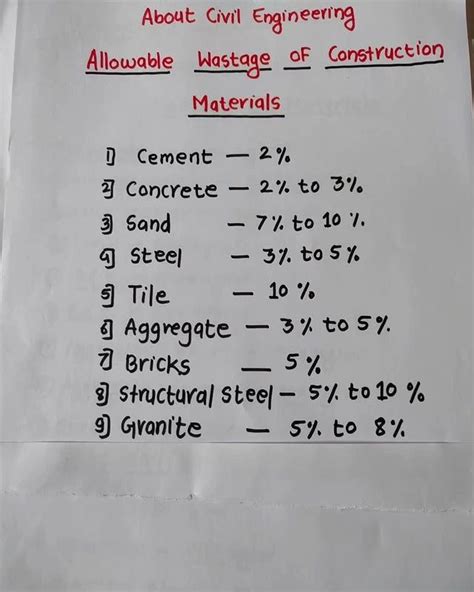 About Civil Engineering
Allowable Wastage of Construction
Materials
1) Cement — 2%
2) Concrete — 2% to 3%
3) Sand — 7% to 10%
4) Steel — 3% to 5%
5) Tile — 10%
6) Aggregate — 3% to 5%
7) Bricks — 5%
8) Structural Steel — 5% to 10%
9) Granite — 5% to 8%